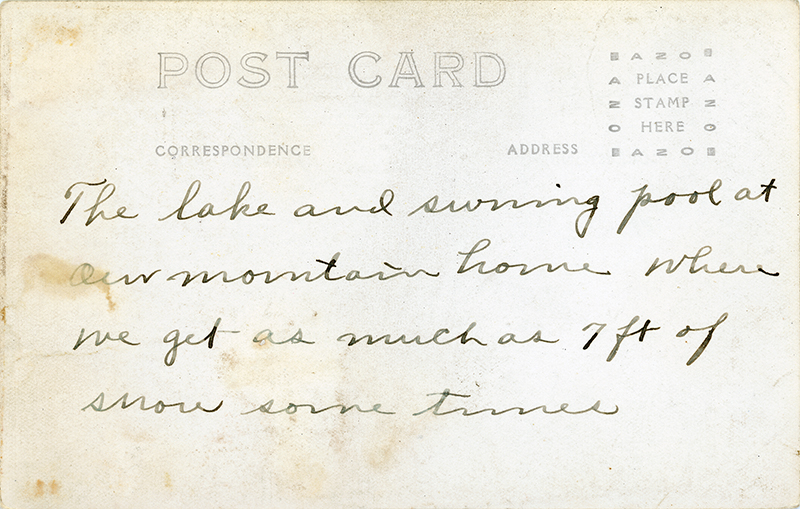 POST CARD
EAZOE
A PLACE A
Z STAMP Z
O HERE O
EAZOE
CORRESPONDENCE ADDRESS
The lake and swming pool at
our mountain home where
we get as much as 7 ft of
snow some times